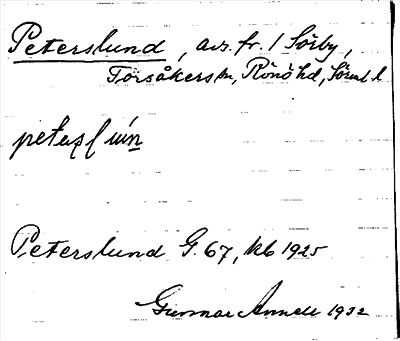 Peterslund, avs. fr. 1 Sörby,
Torsåkers sn, Rönö hd, Sörml. l.
Peterslund G. 67, kb 1925
Gunnar Annell 1932